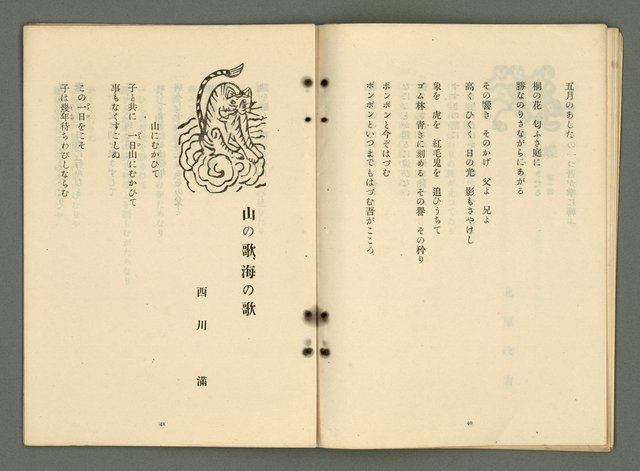 五月のあしたの一つ
桐の花　匂ふさ庭に
勝なのりさながらにあがる
その響き　そのかげ　父よ　兄よ
高く　ひくく　日の光　影もさやけし
象を　虎を　紅毛鬼を　追ひうちて
ゴム林　青きに刻める　その誉　その矜り
ボンボンと今ぞはづむ
ボンボンといつまでもはづむ吾がこころ
40
山の歌、海の歌
西川　満
山にむかひて
子と共に　一日山にむかひて
事もなくすごしぬ
この一日をこそ
子は幾年待ちわびしならむ
41